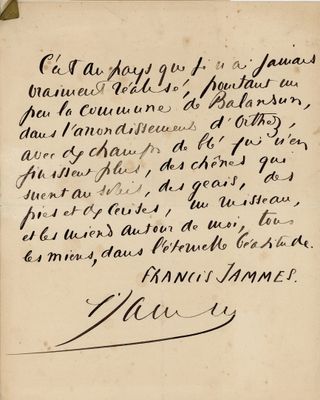 C'est au pays que je n'ai jamais
vraiment réalisé, pourtant un
peu la commune de Balansun,
dans l'arrondissement d'Orthez,
avec des champs de blé qui n'en
finissent plus, des chênes qui
suent au soleil, des geais, des
pies et des cerises, un ruisseau,
et les miens autour de moi, tous
les miens, dans l'éternelle béatitude.
FRANCIS JAMMES.
Jammes